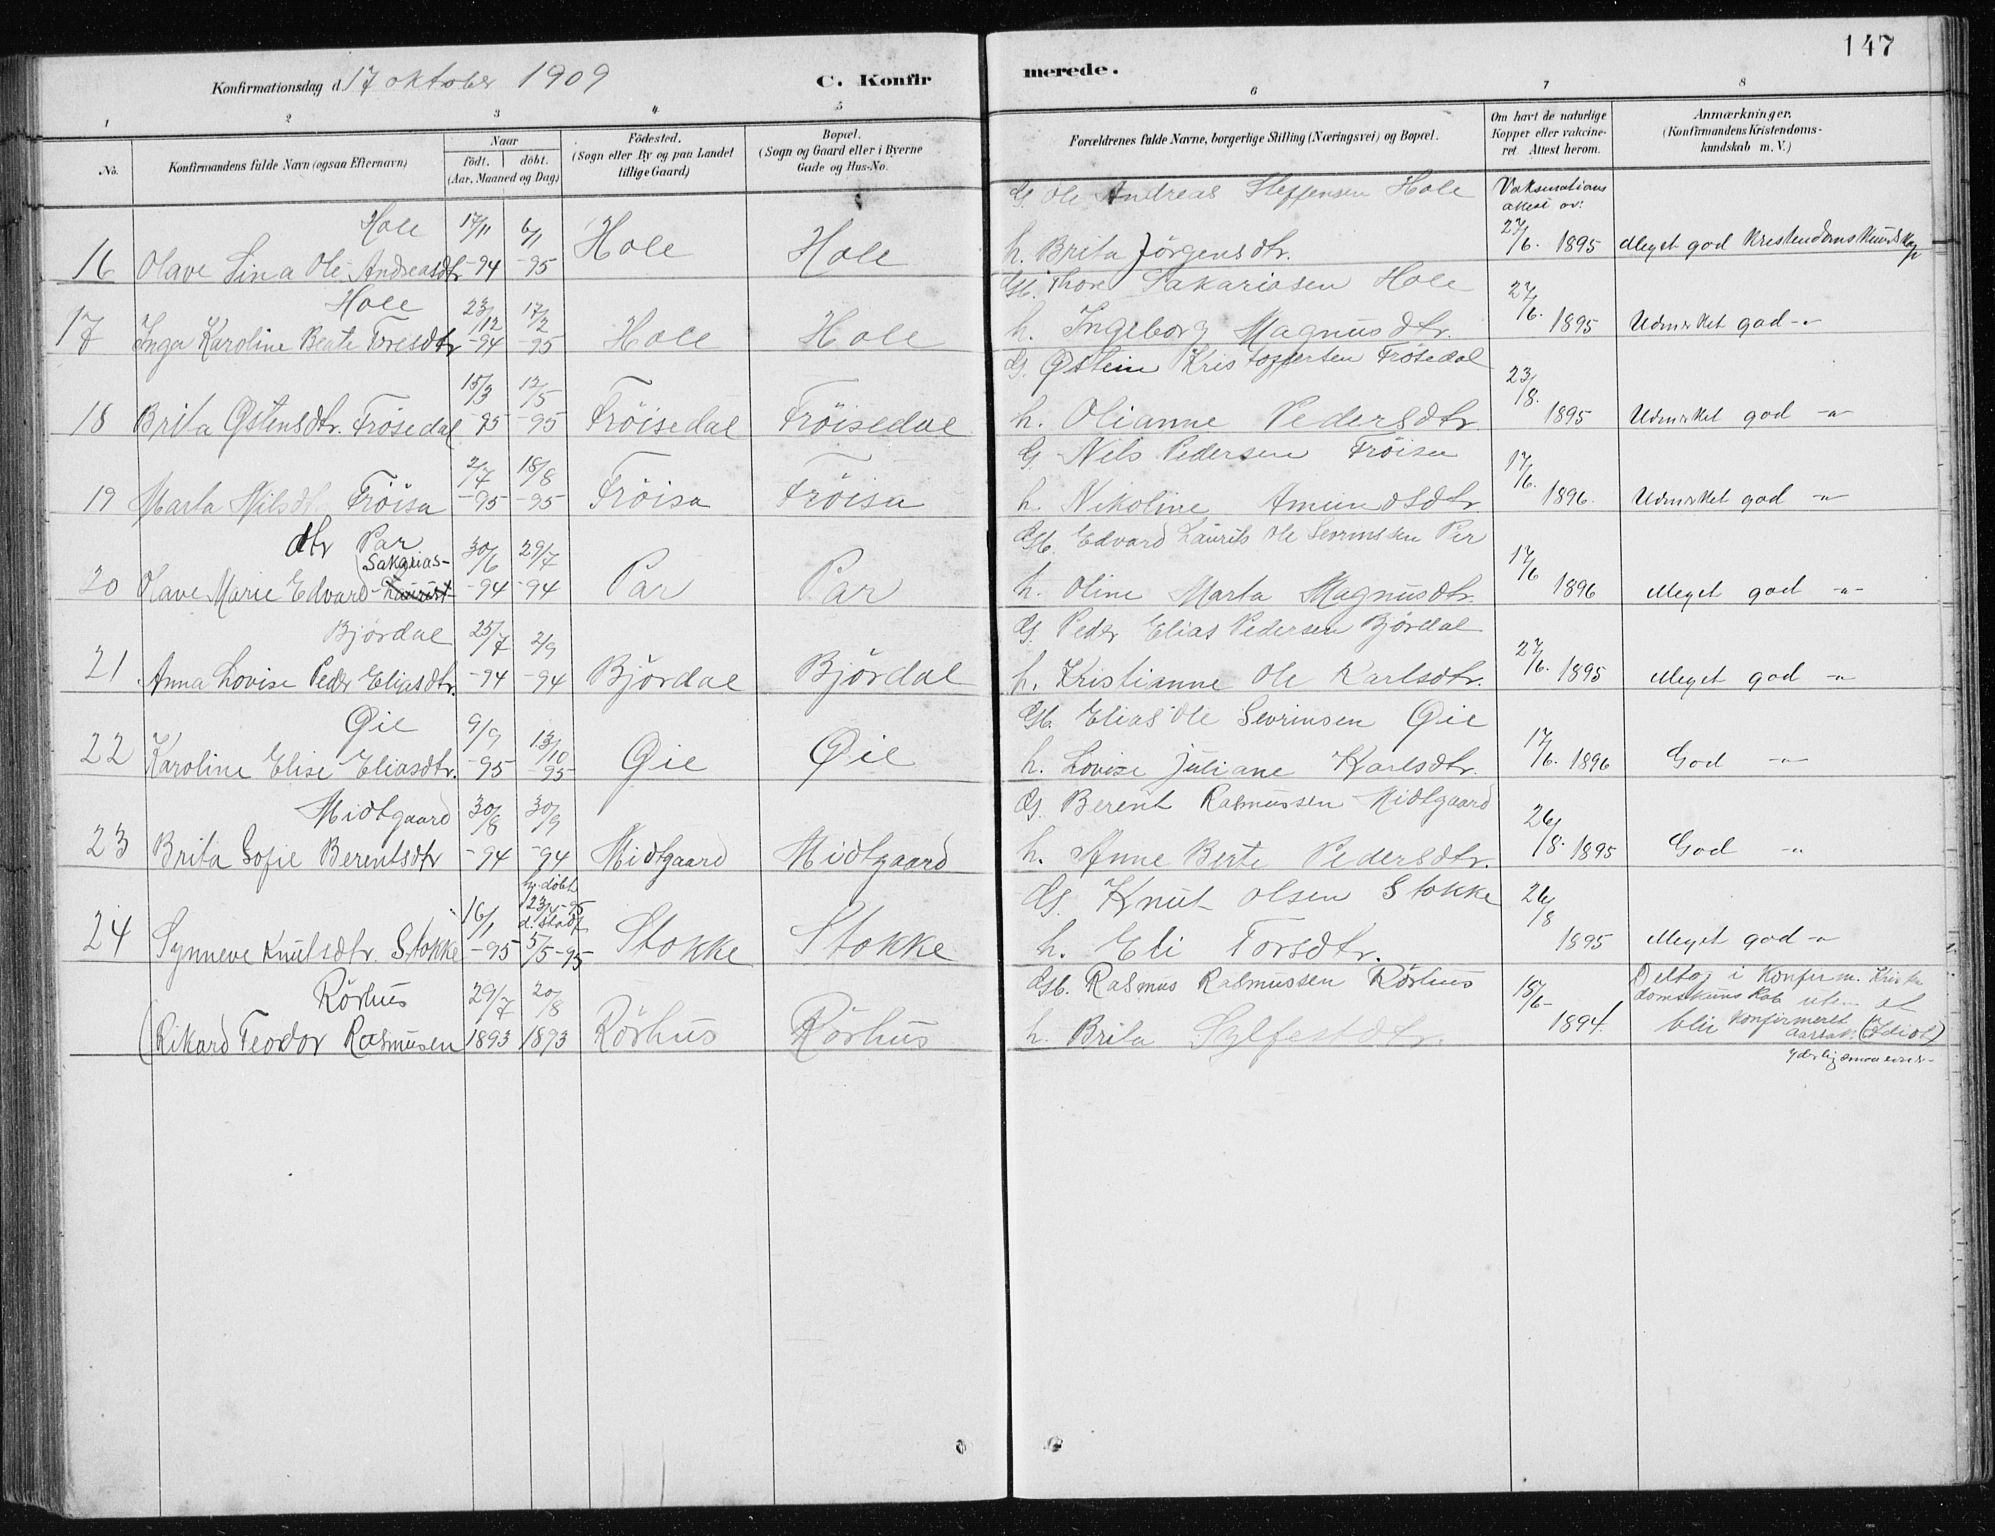 147
Konfirmationsdag d. 17 oktober 1909
C. Konfirmerede.
1 2 3 4 5 6 7 8
No.
Konfirmandens fulde Navn (ogsaa Efternavn)
Naar
födt. döbt.
(Aar, Maaned og Dag)
Födested.
(Sogn eller By og paa Landet
tillige Gaard)
Bopæl.
(Sogn og Gaard eller i Byerne
Gade og Hus-No.
Forældrenes fulde Navne, borgerlige Stilling (Næringsvei) og Bopæl.
Om havt de naturlige
Kopper eller vakcine-
ret. Attest herom.
Anmærkninger.
(Konfirmandens Kristendoms-
kundskab m. V.)
Hole 17/11 6/1 G. Ole Andreas Steffensen Hole Vaksinations
attest av:
16 Olave Lina Ole Andreasdtr -94 -95 Hole Hole h. Brita Jörgensdtr. 27/6. 1895 Meget god Kristendomskundskap
Hole 23/12 17/2 Gb. Thore Sakariasen Hole
17 Inga Karoline Beate Toresdtr -94 -95 Hole Hole h. Ingeborg Magnusdtr. 27/6. 1895 Udmerket god -"-
15/3 12/5 G. Østein Kristoffersen Frösedal
18 Brita Østensdtr. Frösedal -95 -95 Fröisedal Fröisedal h. Olianne Pedersdtr 23/8. 1895 Udmerket god -"-
2/7 18/8 G. Nils Pedersen Fröisa
19 Marta Nilsdt Fröisa -95 -95 Fröisa Fröisa h. Nikoline Amundsdtr. 17/6. 1896. Udmerket god -"-
dtr Par 30/6 29/7 Gb. Edvard Laurits Ole Sevrinssen Per
Sakarias-
20 Olave Marie Edvard Laurist -94 -94 Par Par h. Oline Marta Magnusdtr. 17/6 1896 Meget god -"-
Bjørdal 25/7 2/9 G. Peder Elias Pedersen Bjørdal
21 Anna Lovise Peder Eliasdtr. -94 -94 Bjørdal Bjørdal h. Kristianne Ole Karlsdtr. 27/6. 1895 Meget god -"-
Øie 9/9 13/10 Gb. Elias Ole Sevrinsen Øie
22 Karoline Elise Eliasdtr. -95 -95 Øie Øie h. Lovise Juliane Karlsdtr. 17/6. 1896 God -"-
Midtgaard 30/8 30/9 G. Berent Rasmussen Midtgaard
23 Brita Sofie Berentsdtr -94 -94 Midtgaard Midtgaard h. Anne Berte Pedersdtr. 26/8. 1895 God -"-
16/1 hj. döbt 23/4-95 G. Knut Olsen Stokke 26/8
d. Stadf
24 Synneve Knutsdtr. Stokke -95 5/5-95 Stokke Stokke h. Eli Torsdtr. 1895 Meget god -"-
Rörhus 29/7 20/8 Gb. Rasmus Rasmussen Rörhus 15/6- Deltog i Konferm. Kristen
domskunskab uten at
(Rikard Teodor Rasmusen 1893 1893 Rörhus Rörhus h. Brita Sylfestdtr. 1894. blir konfirmeret
Aarsak. (Idiot)